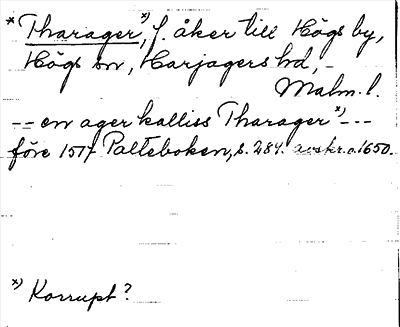 * Tharager *), f. åker till Högs by,
Högs sn, Harjagers hd,
Malm. l.
-- en ager kalliss Tharager *) ---
före 1517 Palteboken, s. 284. avskr. o. 1650.
*) Korrupt?